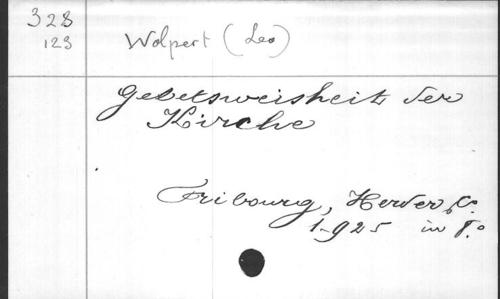 328
123
Wolpert (Leo)
Gebetsweisheit der
Kirche
Fribourg, Herder, C°.
1925 in 8°